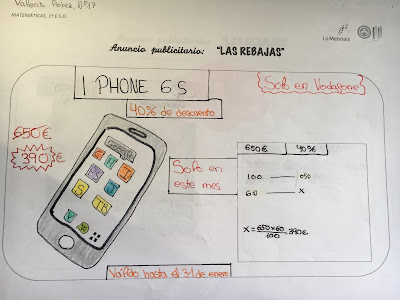 Valleria Pérez, Nº17
MATEMÁTICAS, 2º E.S.O.
La Merinals
Anuncio publicitario: "LAS REBAJAS"
I PHONE 6S
{Solo en Vodafone}
40% de descuento
650€
390€
Solo en
este mes
650€ 40%
100 650
60 x
x = 650x60 = 390€
100
Válido hasta el 31 de enero